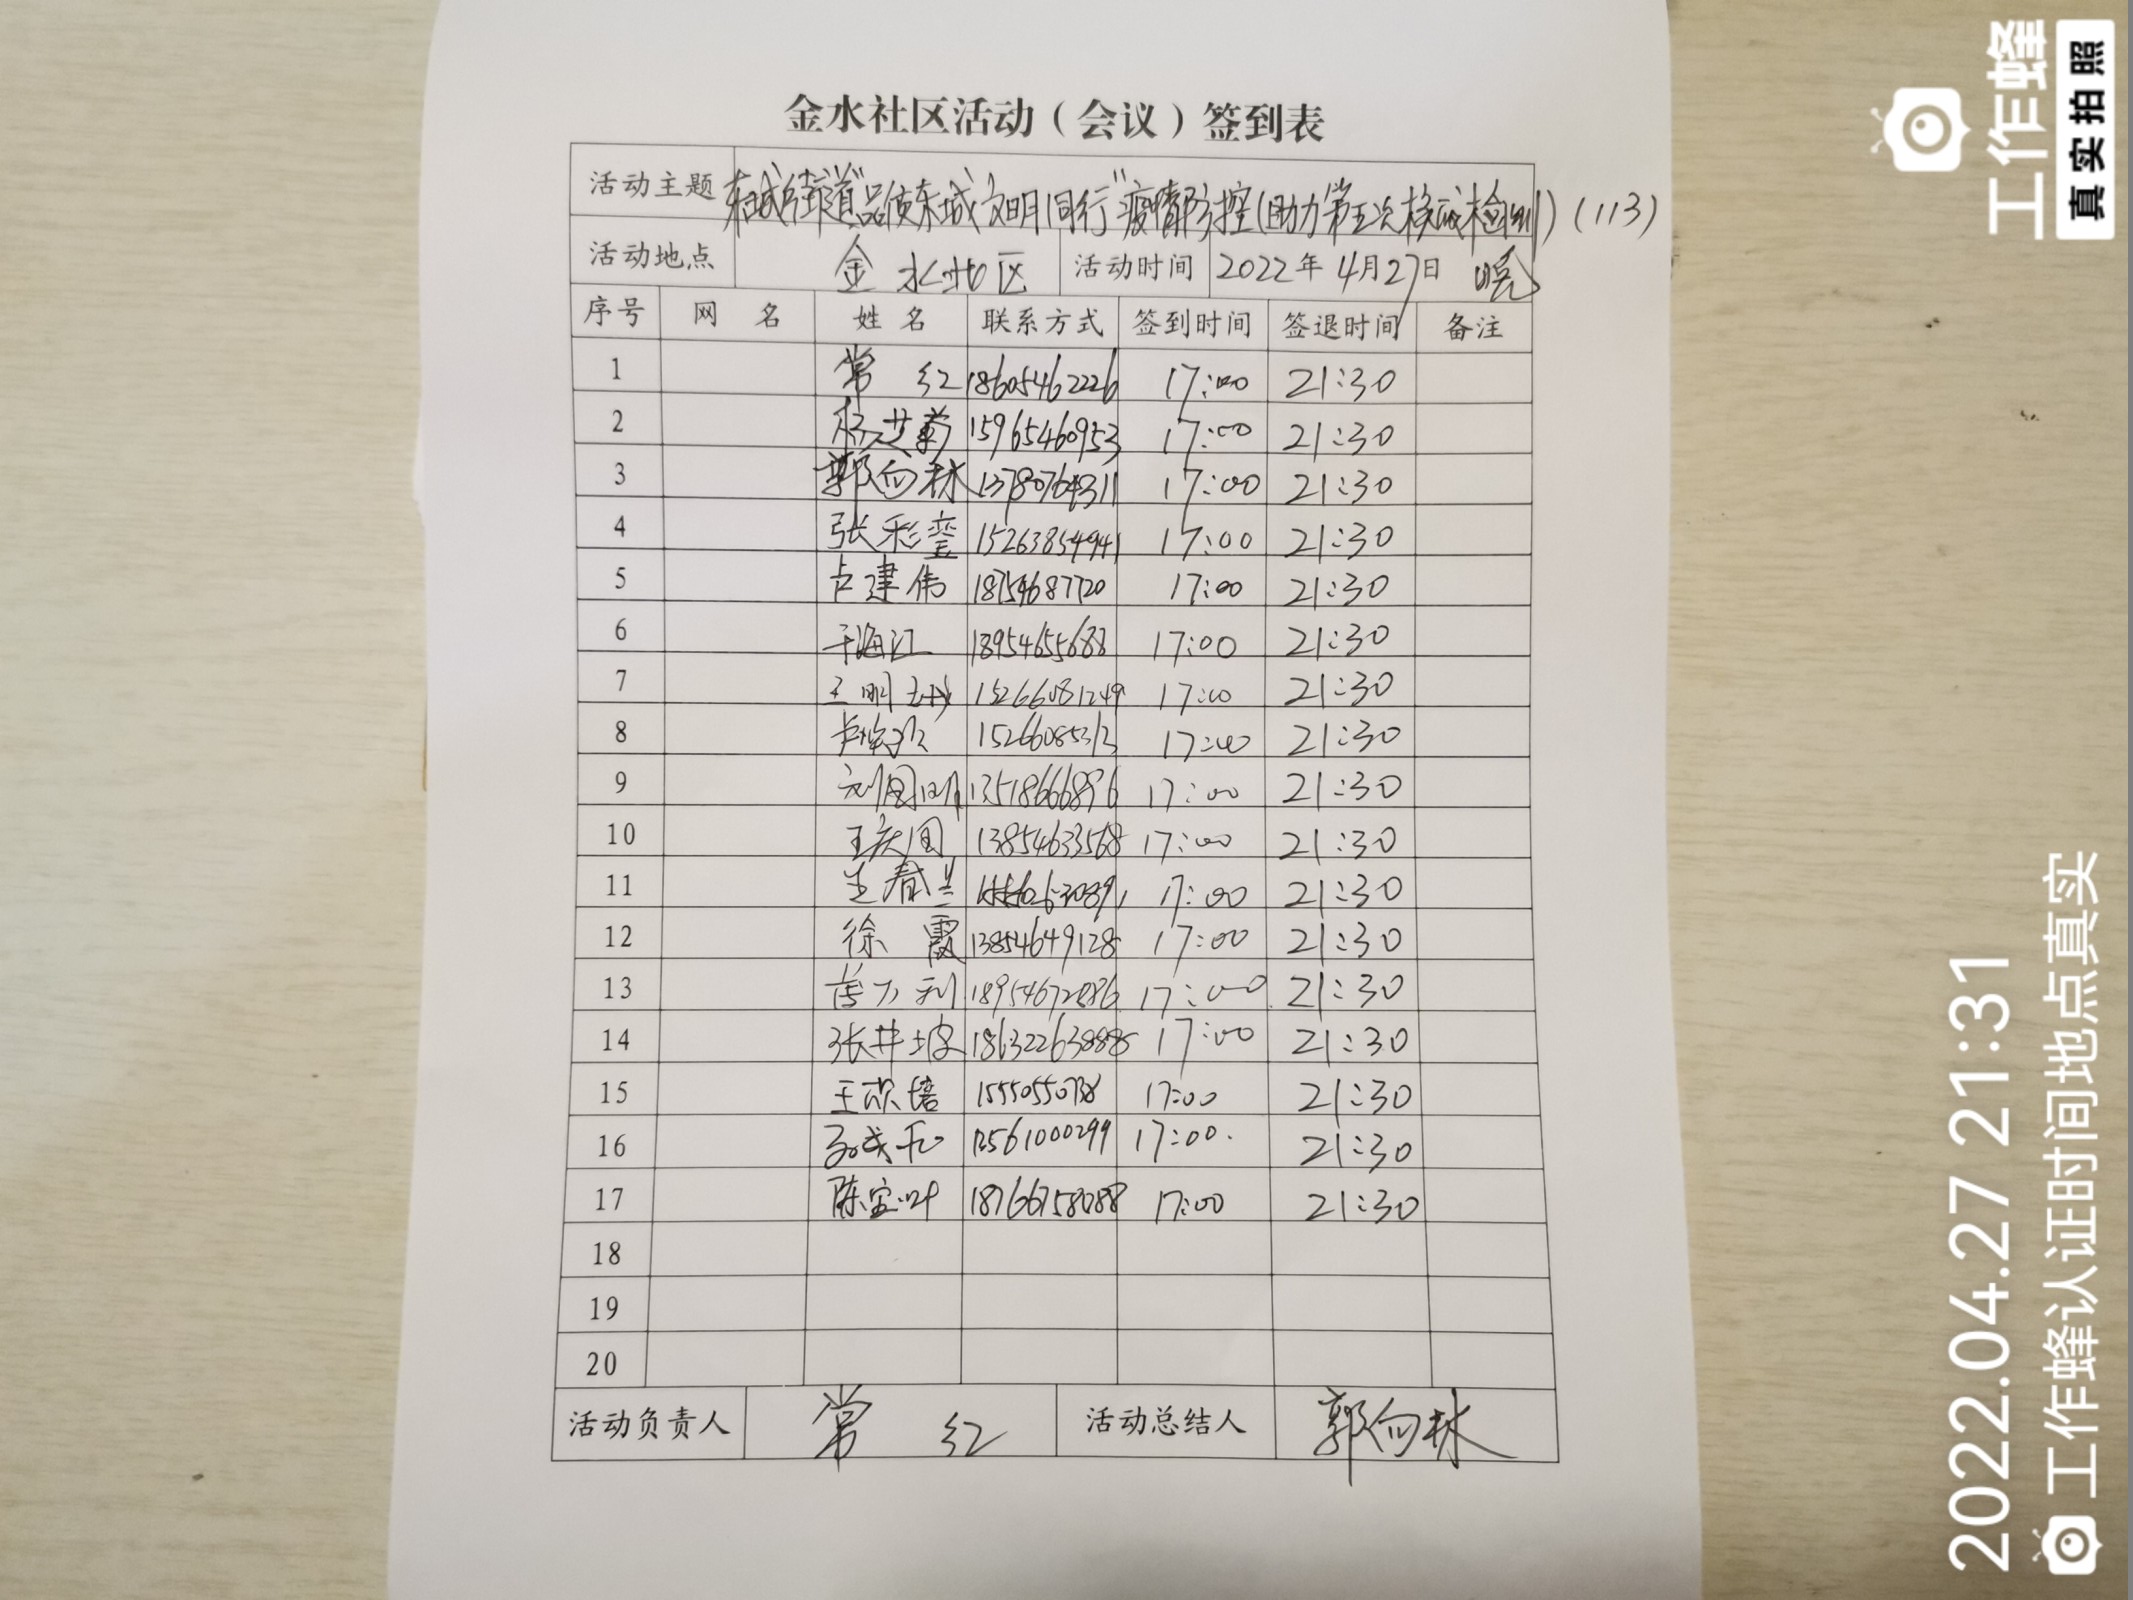 金水社区活动（会议）签到表
活动主题 东城街道"品质东城 文明同行"疫情防控(助力第五次核酸检测)(113)
活动地点 金水社区 活动时间 2022年4月27日 晚
序号 网 名 姓 名 联系方式 签到时间 签退时间 备注
1 常 红 18605462226 17:00 21:30
2 15965460953 17:00 21:30
3 郭向林 13780764311 17:00 21:30
4 张彩銮 15263854941 17:00 21:30
5 卢建伟 18754687720 17:00 21:30
6 于海江 18954655688 17:00 21:30
7 王明 15266081249 17:00 21:30
8 15266085313 17:00 21:30
9 刘国明 13518666896 17:00 21:30
10 王庆国 13854633568 17:00 21:30
11 王春兰 17:00 21:30
12 徐 霞 13854649128 17:00 21:30
13 17:00 21:30
14 张井坡 17:00 21:30
15 王 培 17:00 21:30
16 17:00. 21:30
17 陈宝叶 18766758088 17:00 21:30
18
19
20
活动负责人 常 红 活动总结人 郭向林
工作蜂
真实拍照
2022.04.27 21:31
工作蜂认证时间地点真实